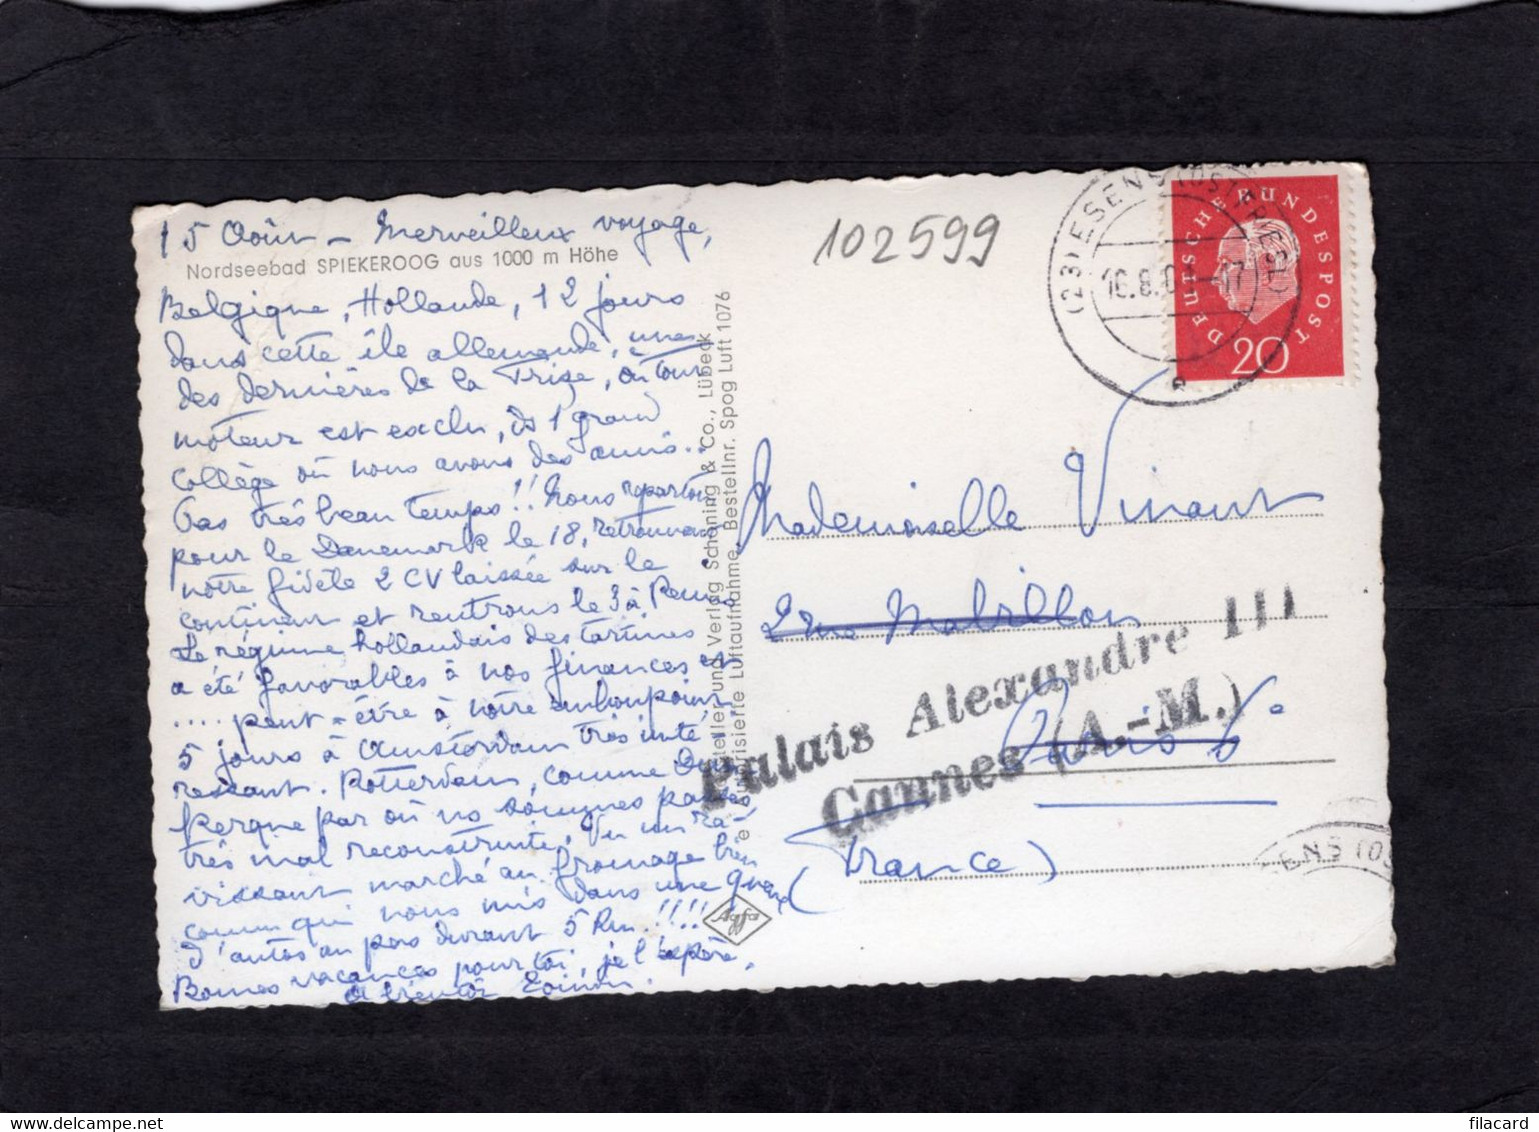 15 Août - Merveilleux voyage,
Nordseebad SPIEKEROOG aus 1000 m Höhe
Belgique, Hollande, 12 jours
dans cette île allemande, une
des dernières de la Frise, où tout
moteur est exclu, ds 1 grand
collège où nous avons des amis..
Pas très beau temps!! Nous repartons
pour le Danemark le 18, retrouvant
notre fidèle 2 CV laissée sur le
continent et rentrons le 3 à
Le régime hollandais des tartines
a été favorable à nos finances et
.... peut-être à notre embonpoint
5 jours à Amsterdam très inté-
ressant. Rotterdam, comme
par où ns sommes passés
très mal reconstruite. Vu un ra-
vissant marché au fromage bien
connu qui nous mis dans une queue
d'autos au pas durant 5 Km!!!!
Bonnes vacances pour toi, je l'espère,
A bientôt
102599
(23) ESENS (OSTFRIESL)
16.8.
-17
e
DEUTSCHE BUNDESPOST
20
Mademoiselle Vinant
2 rue Mabillon
Paris 6e
(France)
Palais Alexandre III
Cannes (A.-M.)
ENS (OS
Verlag Schöning & Co., Lübeck
Luftaufnahme Bestellnr. Spog Luft 1076
Agfa
filacard